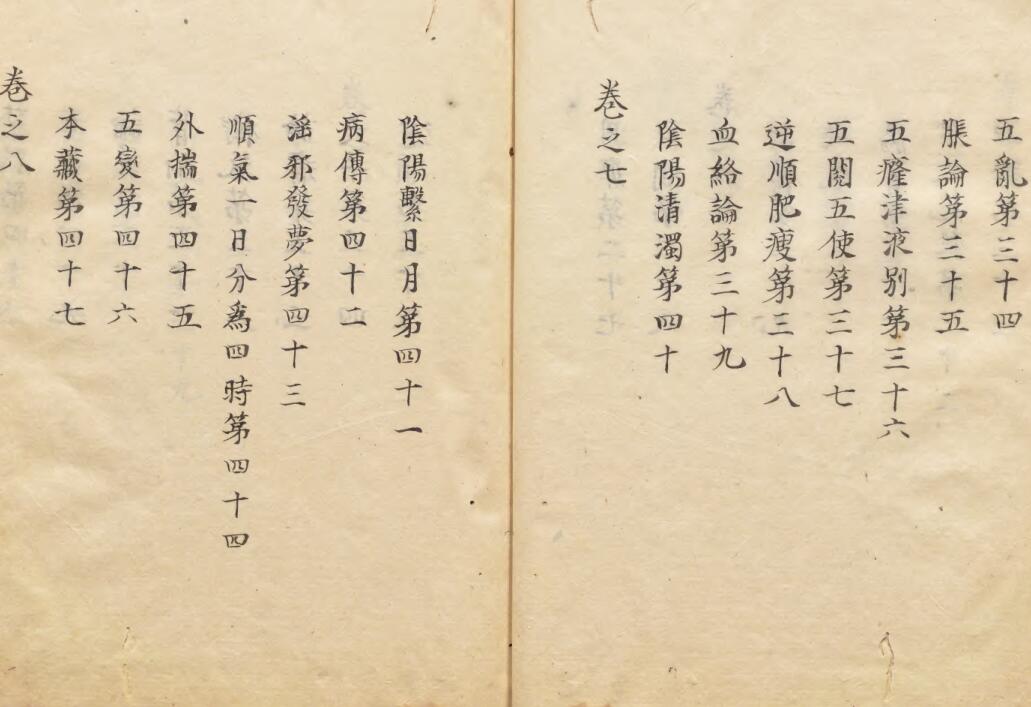 五亂第三十四
脹論第三十五
五癃津液别第三十六
五閱五使第三十七
逆順肥瘦第三十八
血絡論第三十九
陰陽清濁第四十
卷之七
陰陽繫日月第四十一
病傳第四十二
淫邪發夢第四十三
順氣一日分爲四時第四十四
外揣第四十五
五變第四十六
本藏第四十七
卷之八